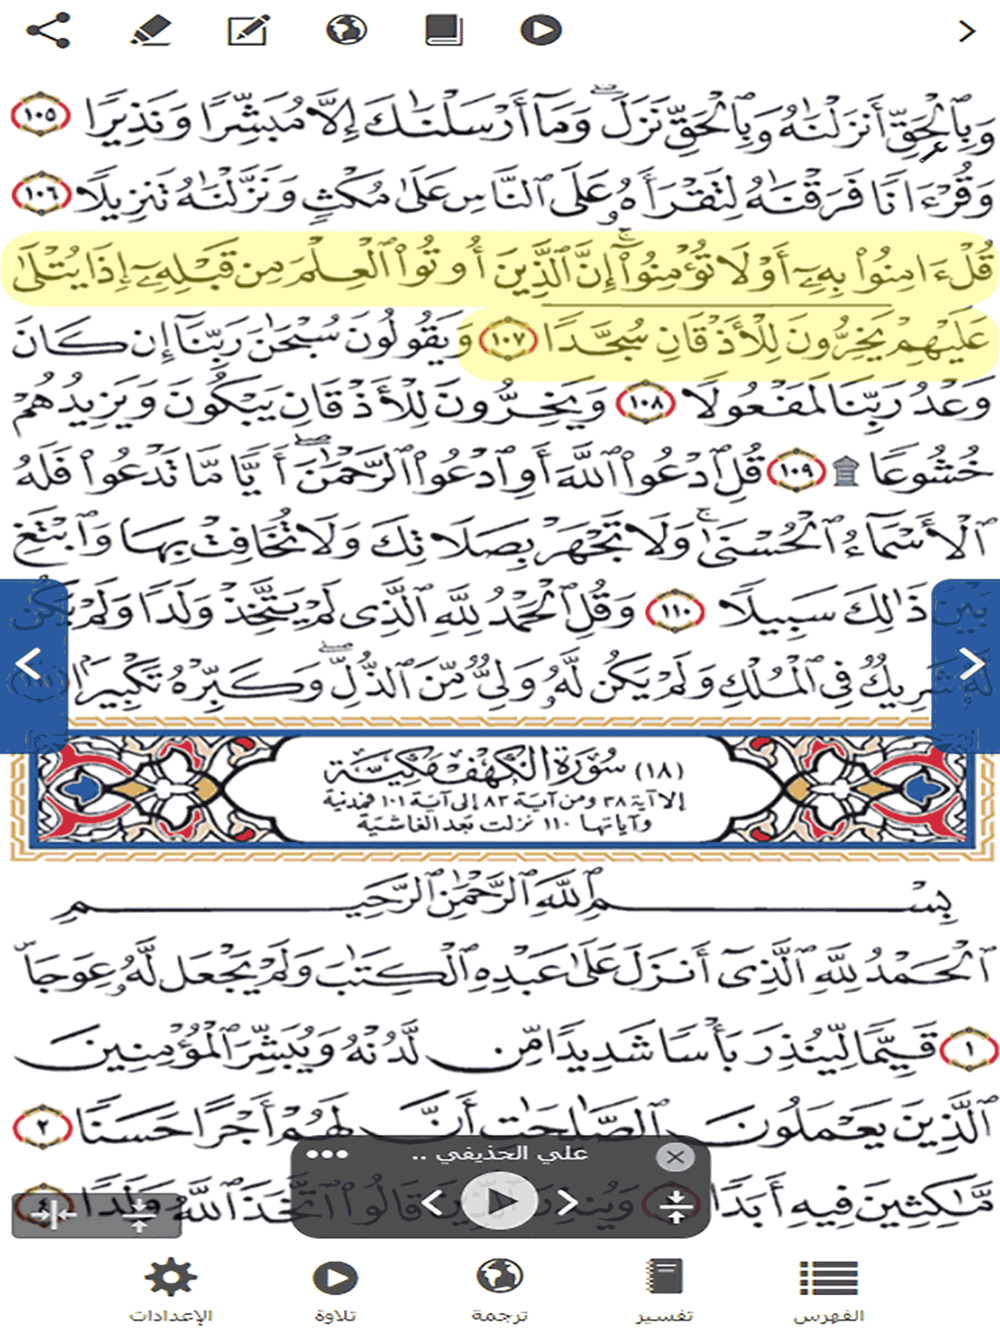 وَبِٱلْحَقِّ أَنزَلْنَٰهُ وَبِٱلْحَقِّ نَزَلَ ۗ وَمَآ أَرْسَلْنَٰكَ إِلَّا مُبَشِّرًا وَنَذِيرًا ١٠٥
وَقُرْءَانًا فَرَقْنَٰهُ لِتَقْرَأَهُۥ عَلَى ٱلنَّاسِ عَلَىٰ مُكْثٍ وَنَزَّلْنَٰهُ تَنزِيلًا ١٠٦
قُلْ ءَامِنُوا۟ بِهِۦٓ أَوْ لَا تُؤْمِنُوٓا۟ ۚ إِنَّ ٱلَّذِينَ أُوتُوا۟ ٱلْعِلْمَ مِن قَبْلِهِۦٓ إِذَا يُتْلَىٰ
عَلَيْهِمْ يَخِرُّونَ لِلْأَذْقَانِ سُجَّدًا ١٠٧ وَيَقُولُونَ سُبْحَٰنَ رَبِّنَآ إِن كَانَ
وَعْدُ رَبِّنَا لَمَفْعُولًا ١٠٨ وَيَخِرُّونَ لِلْأَذْقَانِ يَبْكُونَ وَيَزِيدُهُمْ
خُشُوعًا ۩ ١٠٩ قُلِ ٱدْعُوا۟ ٱللَّهَ أَوِ ٱدْعُوا۟ ٱلرَّحْمَٰنَ ۖ أَيًّا مَّا تَدْعُوا۟ فَلَهُ
ٱلْأَسْمَآءُ ٱلْحُسْنَىٰ ۚ وَلَا تَجْهَرْ بِصَلَاتِكَ وَلَا تُخَافِتْ بِهَا وَٱبْتَغِ
بَيْنَ ذَٰلِكَ سَبِيلًا ١١٠ وَقُلِ ٱلْحَمْدُ لِلَّهِ ٱلَّذِى لَمْ يَتَّخِذْ وَلَدًا وَلَمْ يَكُن
لَّهُۥ شَرِيكٌ فِى ٱلْمُلْكِ وَلَمْ يَكُن لَّهُۥ وَلِىٌّ مِّنَ ٱلذُّلِّ ۖ وَكَبِّرْهُ تَكْبِيرًۢا ١١١
(١٨) سُورَةُ الكَهْفِ مَكِّيَّة
إلا آية ٣٨ ومن آية ٨٣ إلى آية ١٠١ فمدنية
وآياتها ١١٠ نزلت بعد الغاشية
بِسْمِ ٱللَّهِ ٱلرَّحْمَٰنِ ٱلرَّحِيمِ
ٱلْحَمْدُ لِلَّهِ ٱلَّذِىٓ أَنزَلَ عَلَىٰ عَبْدِهِ ٱلْكِتَٰبَ وَلَمْ يَجْعَل لَّهُۥ عِوَجَا ۜ
١ قَيِّمًا لِّيُنذِرَ بَأْسًا شَدِيدًا مِّن لَّدُنْهُ وَيُبَشِّرَ ٱلْمُؤْمِنِينَ
ٱلَّذِينَ يَعْمَلُونَ ٱلصَّٰلِحَٰتِ أَنَّ لَهُمْ أَجْرًا حَسَنًا ٢
علي الحذيفي ..
مَّٰكِثِينَ فِيهِ أَبَدًا ٣ وَيُنذِرَ ٱلَّذِينَ قَالُوا۟ ٱتَّخَذَ ٱللَّهُ وَلَدًا ٤
الفهرس
تفسير
ترجمة
تلاوة
الإعدادات